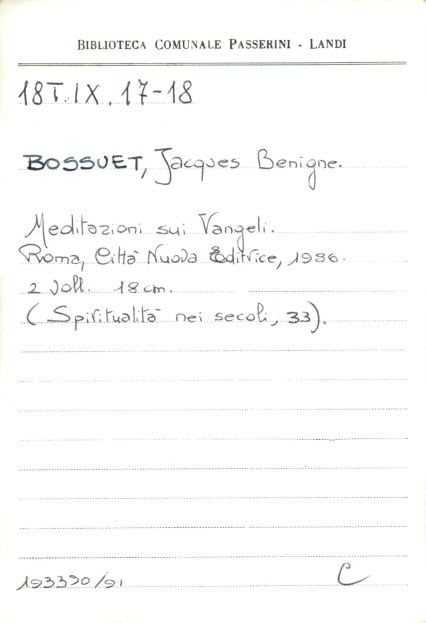 BIBLIOTECA COMUNALE PASSERINI - LANDI
18T.IX.17-18
BOSSUET, Jacques Benigne.
Meditazioni sui Vangeli.
Roma, Città Nuova Editrice, 1986.
2 voll. 18 cm.
(Spiritualità nei secoli, 33).
193390/91
C